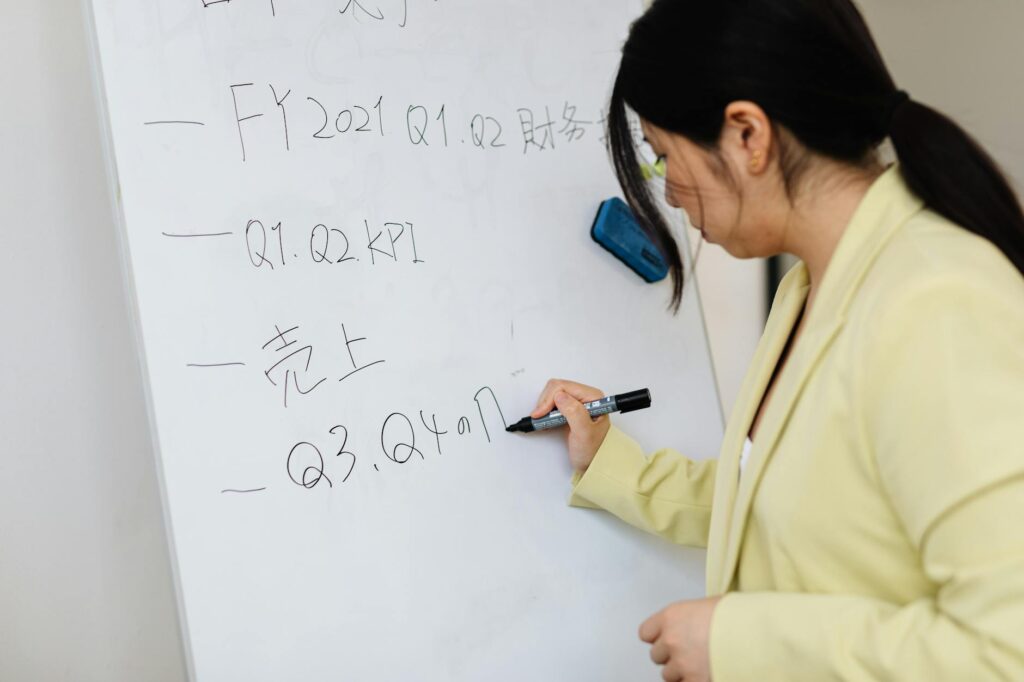 — FY 2021 Q1.Q2 財務
— Q1.Q2.KPI
— 売上
— Q3.Q4の